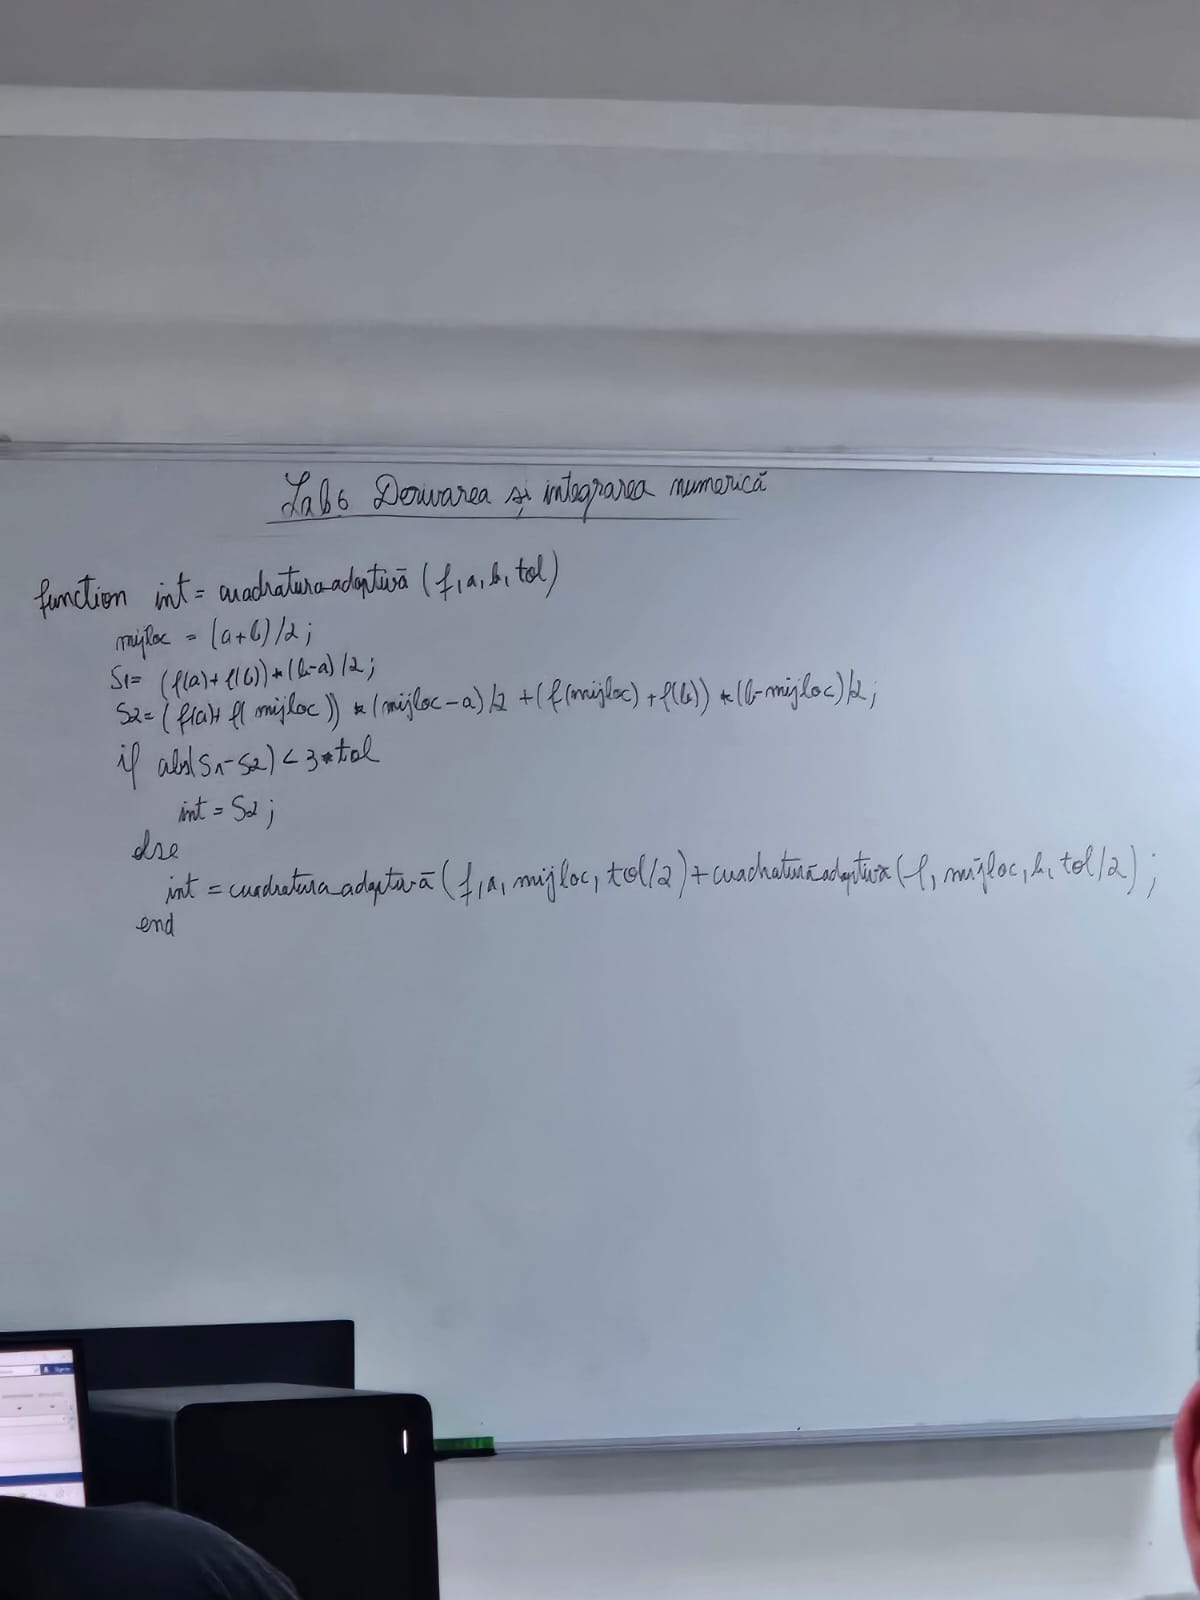 Lab 6 Derivarea și integrarea numerică
function int = cuadratura_adaptivă (f, a, b, tol)
mijloc = (a+b)/2;
S1= (f(a)+f(b))*(b-a)/2;
S2= (f(a)+f(mijloc))*(mijloc-a)/2 +(f(mijloc)+f(b))*(b-mijloc)/2;
if abs(S1-S2)<3*tol
int = S2;
else
int = cuadratura_adaptivă (f, a, mijloc, tol/2)+cuadratură_adaptivă (f, mijloc, b, tol/2);
end